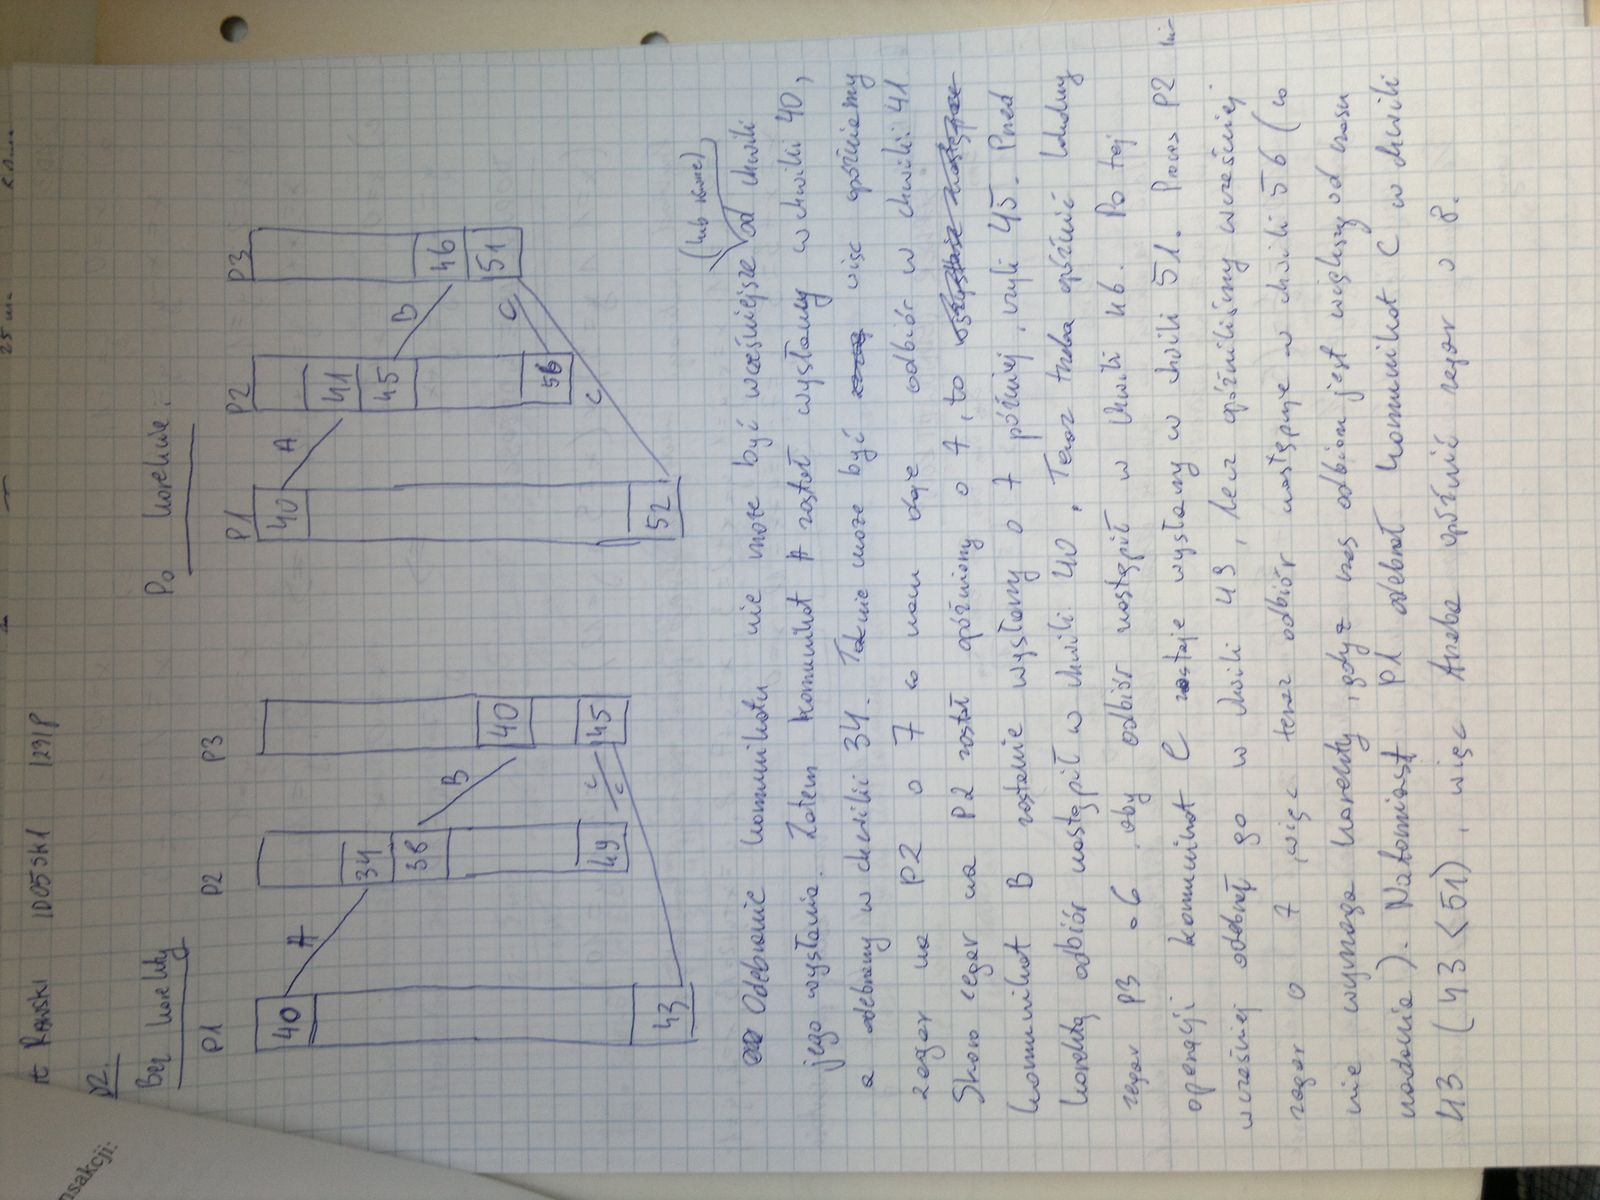 Rawski ID05SK1 1291P
nsakcji:
02.
Bez korekty
Po korekcie.
P1 P2 P3
P1 P2 P3
40 A
34
38 B
40
49 C 45
C
43
40 A
41
45 B
46
51
C
56
C
52
(lub równe)
Odebranie komunikatu nie może być wcześniejsze od chwili
jego wysłania. Zatem komunikat A został wysłany w chwili 40,
a odebrany w chwili 34. Tak nie może być więc opóźniamy
zegar na P2 o 7 co nam daje odbiór w chwili 41
Skoro zegar na P2 został opóźniony o 7, to
komunikat B zostanie wysłany o 7 później, czyli 45. Przed
korektą odbiór nastąpił w chwili 40, Teraz trzeba opóźnić lokalny
zegar P3 o 6, aby odbiór nastąpił w chwili 46. Po tej
operacji komunikat C zostaje wysłany w chwili 51. Proces P2
wcześniej odebrał go w chwili 49, lecz opóźniliśmy wcześniej
zegar o 7, więc teraz odbiór następuje w chwili 56 (co
nie wymaga korekty, gdyż czas odbioru jest większy od czasu
nadania). Natomiast P1 odebrał komunikat C w chwili
43 (43 < 51), więc trzeba opóźnić zegar o 8.